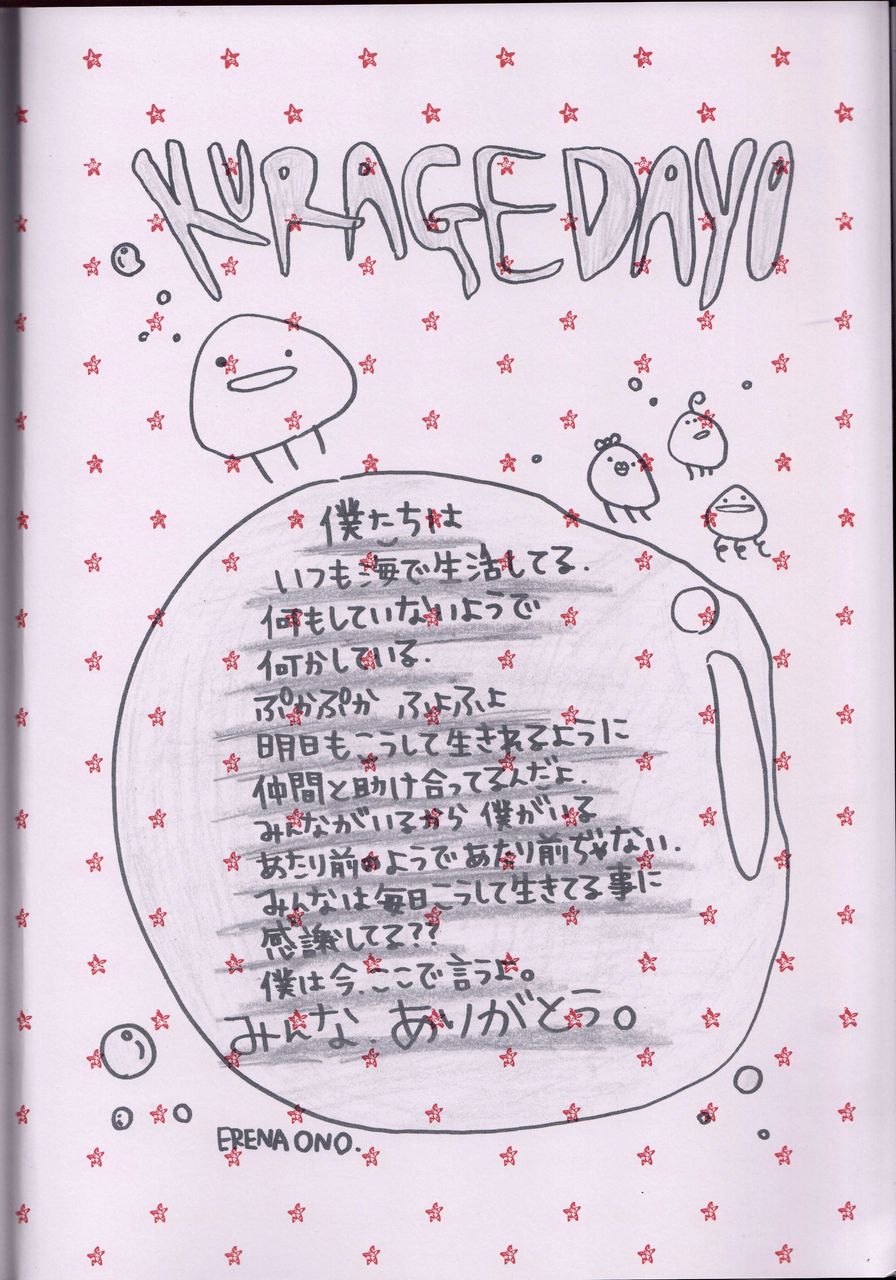 KURAGEDAYO
僕たちは
いつも海で生活してる.
何もしていないようで
何かしている.
ぷかぷか ふよふよ
明日もこうして生きれるように
仲間と助け合ってるんだよ.
みんながいるから 僕がいる
あたり前のようであたり前ぢゃない.
みんなは毎日こうして生きてる事に
感謝してる??
僕は今、ここで言うよ。
みんな、ありがとう。
ERENA ONO.